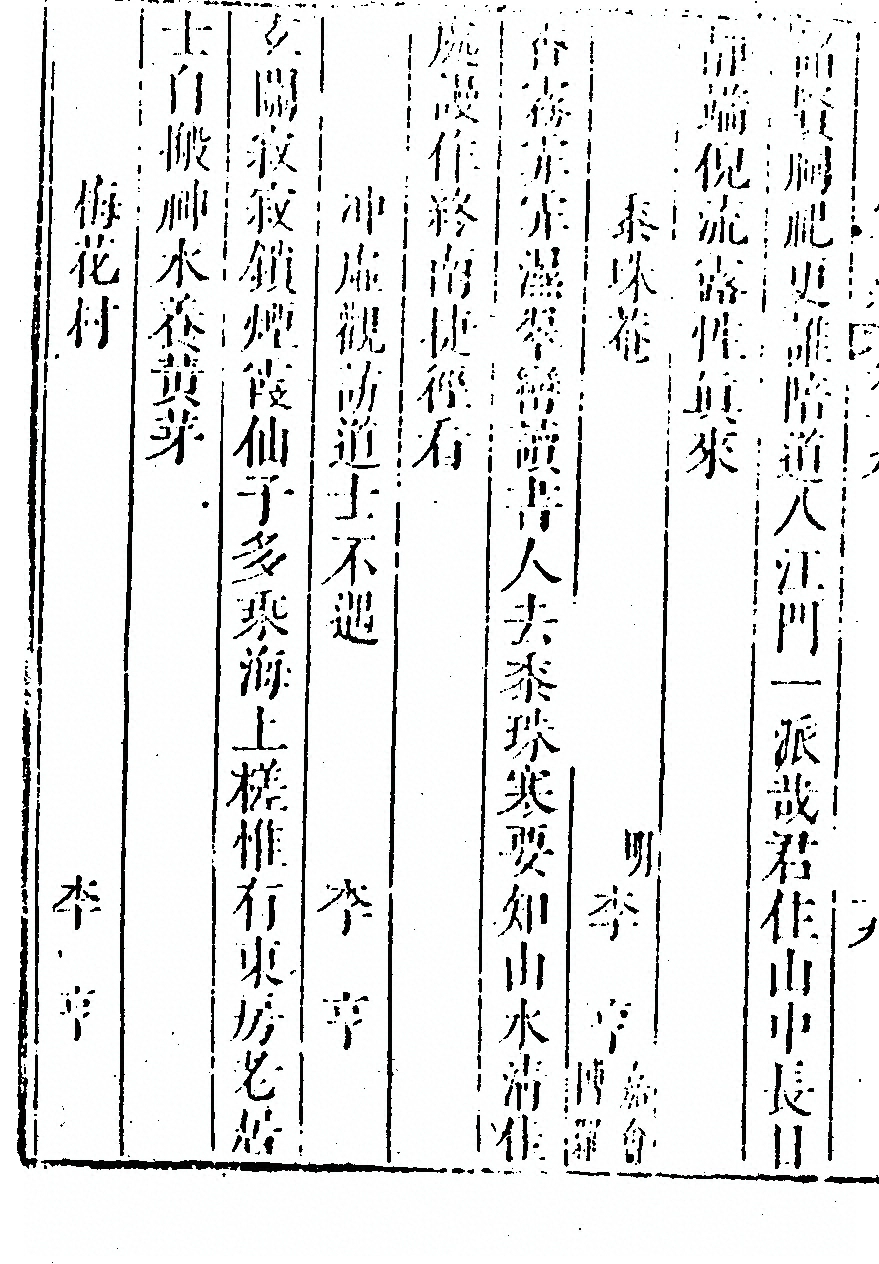 賢祠祀更誰陪道入江門一派哉君住山中長日
靜端倪流露性眞來
泰珠菴 明 李亨 博羅
香霧霏霏濕翠巒讀書人去泰珠寒要知山水淸佳
處謾作終南捷徑看
冲虛觀訪道士不遇 李亨
玄關寂寂鎖煙霞仙子多乘海上槎惟有東房老居
士自搬神水養黃芽
梅花村 李亨